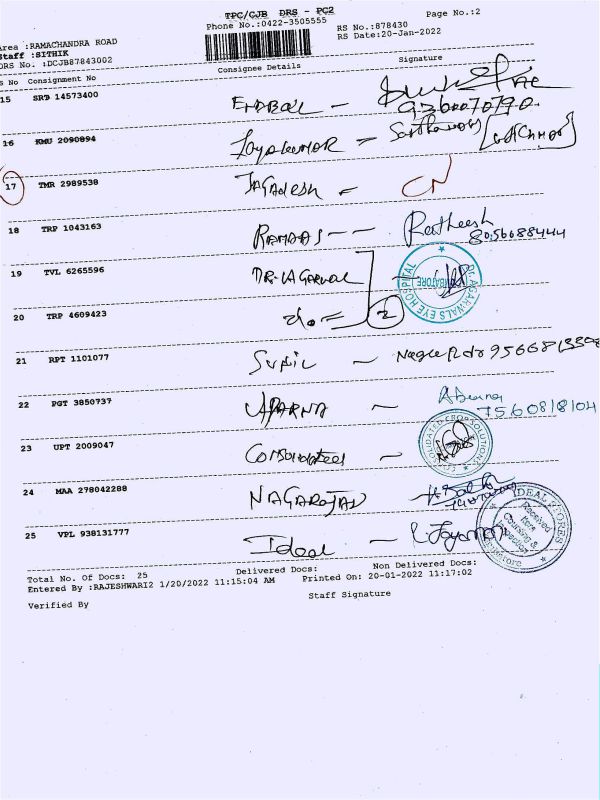 TPC/CJB DRS - PC2
Phone No.:0422-3505555
Page No.:2
RS No.:878430
RS Date:20-Jan-2022
Area :RAMACHANDRA ROAD
Staff :SITHIK
DRS No. :DCJB87843002
S No Consignment No Consignee Details Signature
15 SRD 14573400
9360070790
16 KMU 2090894 Jayakumar
17 TMR 2989538 JAGADESH - CN
18 TRP 1043163 RAMDAS -- Ratheesh
8056688444
19 TVL 6265596 DR. AGARWAL
DR.AGARWALS EYE HOSPITAL
COIMBATORE
20 TRP 4609423 do = 2
21 RPT 1101077 SUNIL -
22 PGT 3850737 APARNA - Abeena
7560818104
23 UPT 2009047 Consolidated -
24 MAA 278042288 NAGARAJAN -
25 VPL 938131777 Ideal - Jayamani
Received
Item
Counting &
Inspection
Total No. Of Docs: 25 Delivered Docs: Non Delivered Docs:
Entered By :RAJESHWARI2 1/20/2022 11:15:04 AM Printed On: 20-01-2022 11:17:02
Verified By Staff Signature